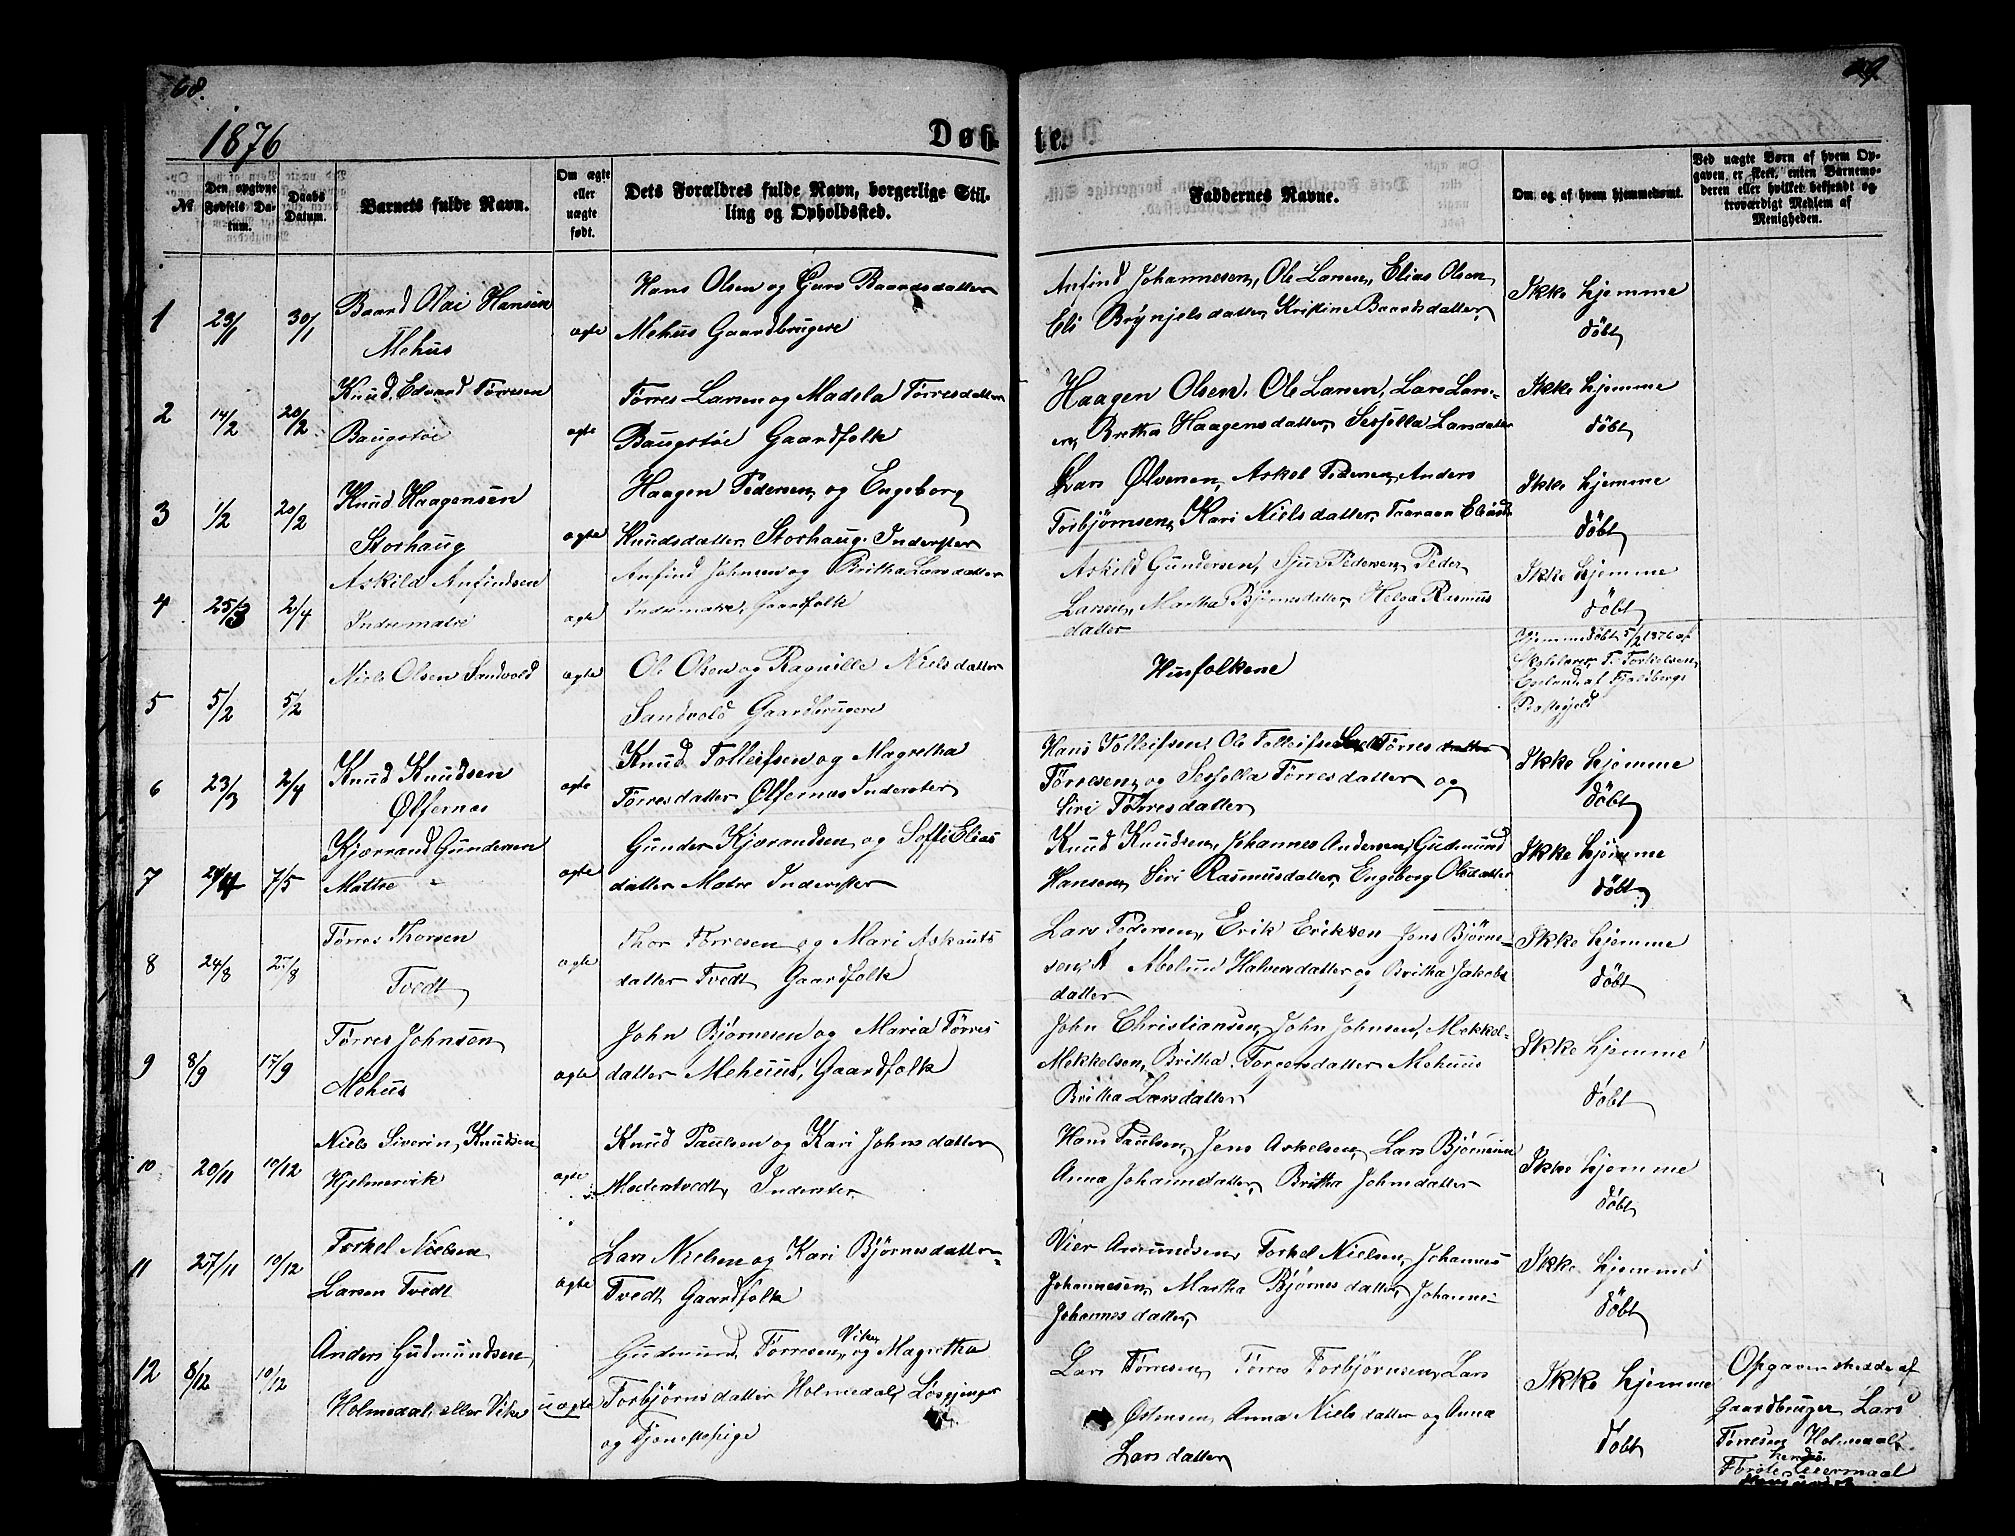 68.
69
1876
Døb
te.
№
Den opgivne Fødsels Datum.
Daabs Datum.
Barnets fulde Navn.
Om ægte eller uægte født.
Dets Forældres fulde Navn, borgerlige Stilling og Opholdssted.
Faddernes Navne.
Om og af hvem hjemmedømt.
Ved uægte Børn af hvem Opgaven er skeet, enten Barnemoderen eller hvilket bekjendt og troværdigt Medlem af Menigheden.
1 23/1 30/1
Baard Olai Hansen
Mehus
ægte
Hans Olsen og Guro Baardsdatter
Mehus Gaardbrugere
Anfind Johannesen, Ole Larsen, Elias Olsen
Eli Brynjelsdatter, Kristine Baardsdatter,
Ikke hjemme
døbt
2 14/2 20/2
Knud Edvard Tørresen
Baugstøe
ægte
Tørres Larsen og Madela Tørresdatter
Baugstøe Gaardfolk
Haagen Olsen, Ole Larsen, Lars Lars-
en, Britha Haagensdatter, Sesjella Larsdatter
Ikke hjemme
døbt
3 1/2 20/2
Knud Haagensen
Storhaug
ægte
Haagen Pedersen og Engeborg
Knudsdatter Storhaug. Inderster
Lars Ølversen, Askel Pedersen, Anders
Torbjørnsen, Kari Nielsdatter,
Ikke hjemme
døbt
4 25/3 2/4
Askild Anfindsen
Indrematre
ægte
Anfind Johnsen og Britha Larsdatter
Indrematre, Gaardfolk
Askild Gundersen, Sjur Pedersen, Peder
Larsen, Martha Bjørnsdatter, Helga Rasmus
datter
Ikke hjemme
døbt
5 5/2 5/2
Niels Olsen Sandvold
ægte
Ole Olsen og Ragnille Nielsdatter
Sandvold Gaardbrugere
Husfolkene
Hjemmedøbt 5/2 1876 af
Skolelærer T. Torkelsen
Eseland af Fjeldbergs
Præstegjeld
6 23/3 2/4
Knud Knudsen
Ølfernas
ægte
Knud Tolleifsen og Magretha
Tørresdatter Ølfernas Inderster
Hans Tolleifsen, Ole Tolleifsen Tørresdatter
Tørresen, og Sesjella Tørresdatter og
Siri Tørresdatter
Ikke hjemme
døbt
7 24/4 7/5
Kjærrand Gundersen
Mattre
ægte
Gunder Kjærandsen og Soffi Elias
datter Matre Inderster
Knud Knudsen, Johannes Andersen, Gudmund
Hansen, Siri Rasmusdatter, Engeborg Olsdatter
Ikke hjemme
døbt
8 24/8 27/8
Tørres Thorsen
Tvedt
ægte
Thor Tørresen og Mari Askauts
datter Tvedt Gaardfolk
Lars Pedersen, Erik Eriksen Jens Bjørne-
sen, Abelun Halvorsdatter og Britha Jakobs
datter
Ikke hjemme
døbt
9 8/9 17/9
Tørres Johnsen
Mehus
ægte
John Bjørnesen og Maria Tørres
datter Mehuus, Gaardfolk
John Christiansen, John Johnsen, Mekkel-
Mekkelsen, Britha Torgersdatter Mehuus
Britha Larsdatter
Ikke hjemme
døbt
10 20/11 10/12
Niels Siverin, Knudsen
Hjelmervik
ægte
Knud Paulsen og Kari Johnsdatter
Mederstvedt, Inderster
Hans Paulsen, Jens Askelsen, Lars Bjørnesen
Anna Johannsdatter, Britha Johnsdatter
Ikke hjemme
døbt
11 27/11 10/12
Torkel Nielsen
Larsen Tvedt
ægte
Lars Nielsen og Kari Bjørnesdatter
Tvedt Gaardfolk
Vier Amundsen, Torkel Nielsen, Johannes
Johannesen, Martha Bjørnesdatter, Johanne
Johannesdatter,
Ikke hjemme
døbt
12 8/12 10/12
Anders Gudmundsen
Holmedal, eller Vike
uægte
Gudmund Tørresen Vike, og Magretha
Torbjørnsdatter Holmedal, Løsgjenger
og Tjenestepige
Lars Tørresen, Tørres Torbjørnsen, Lars
Østensen, Anna Nielsdatter og Anna
Larsdatter
Ikke hjemme
døbt
Opgaven skedde af
Gaardbruger Lars
Tørresen Holmedal,
Første Leiermaal